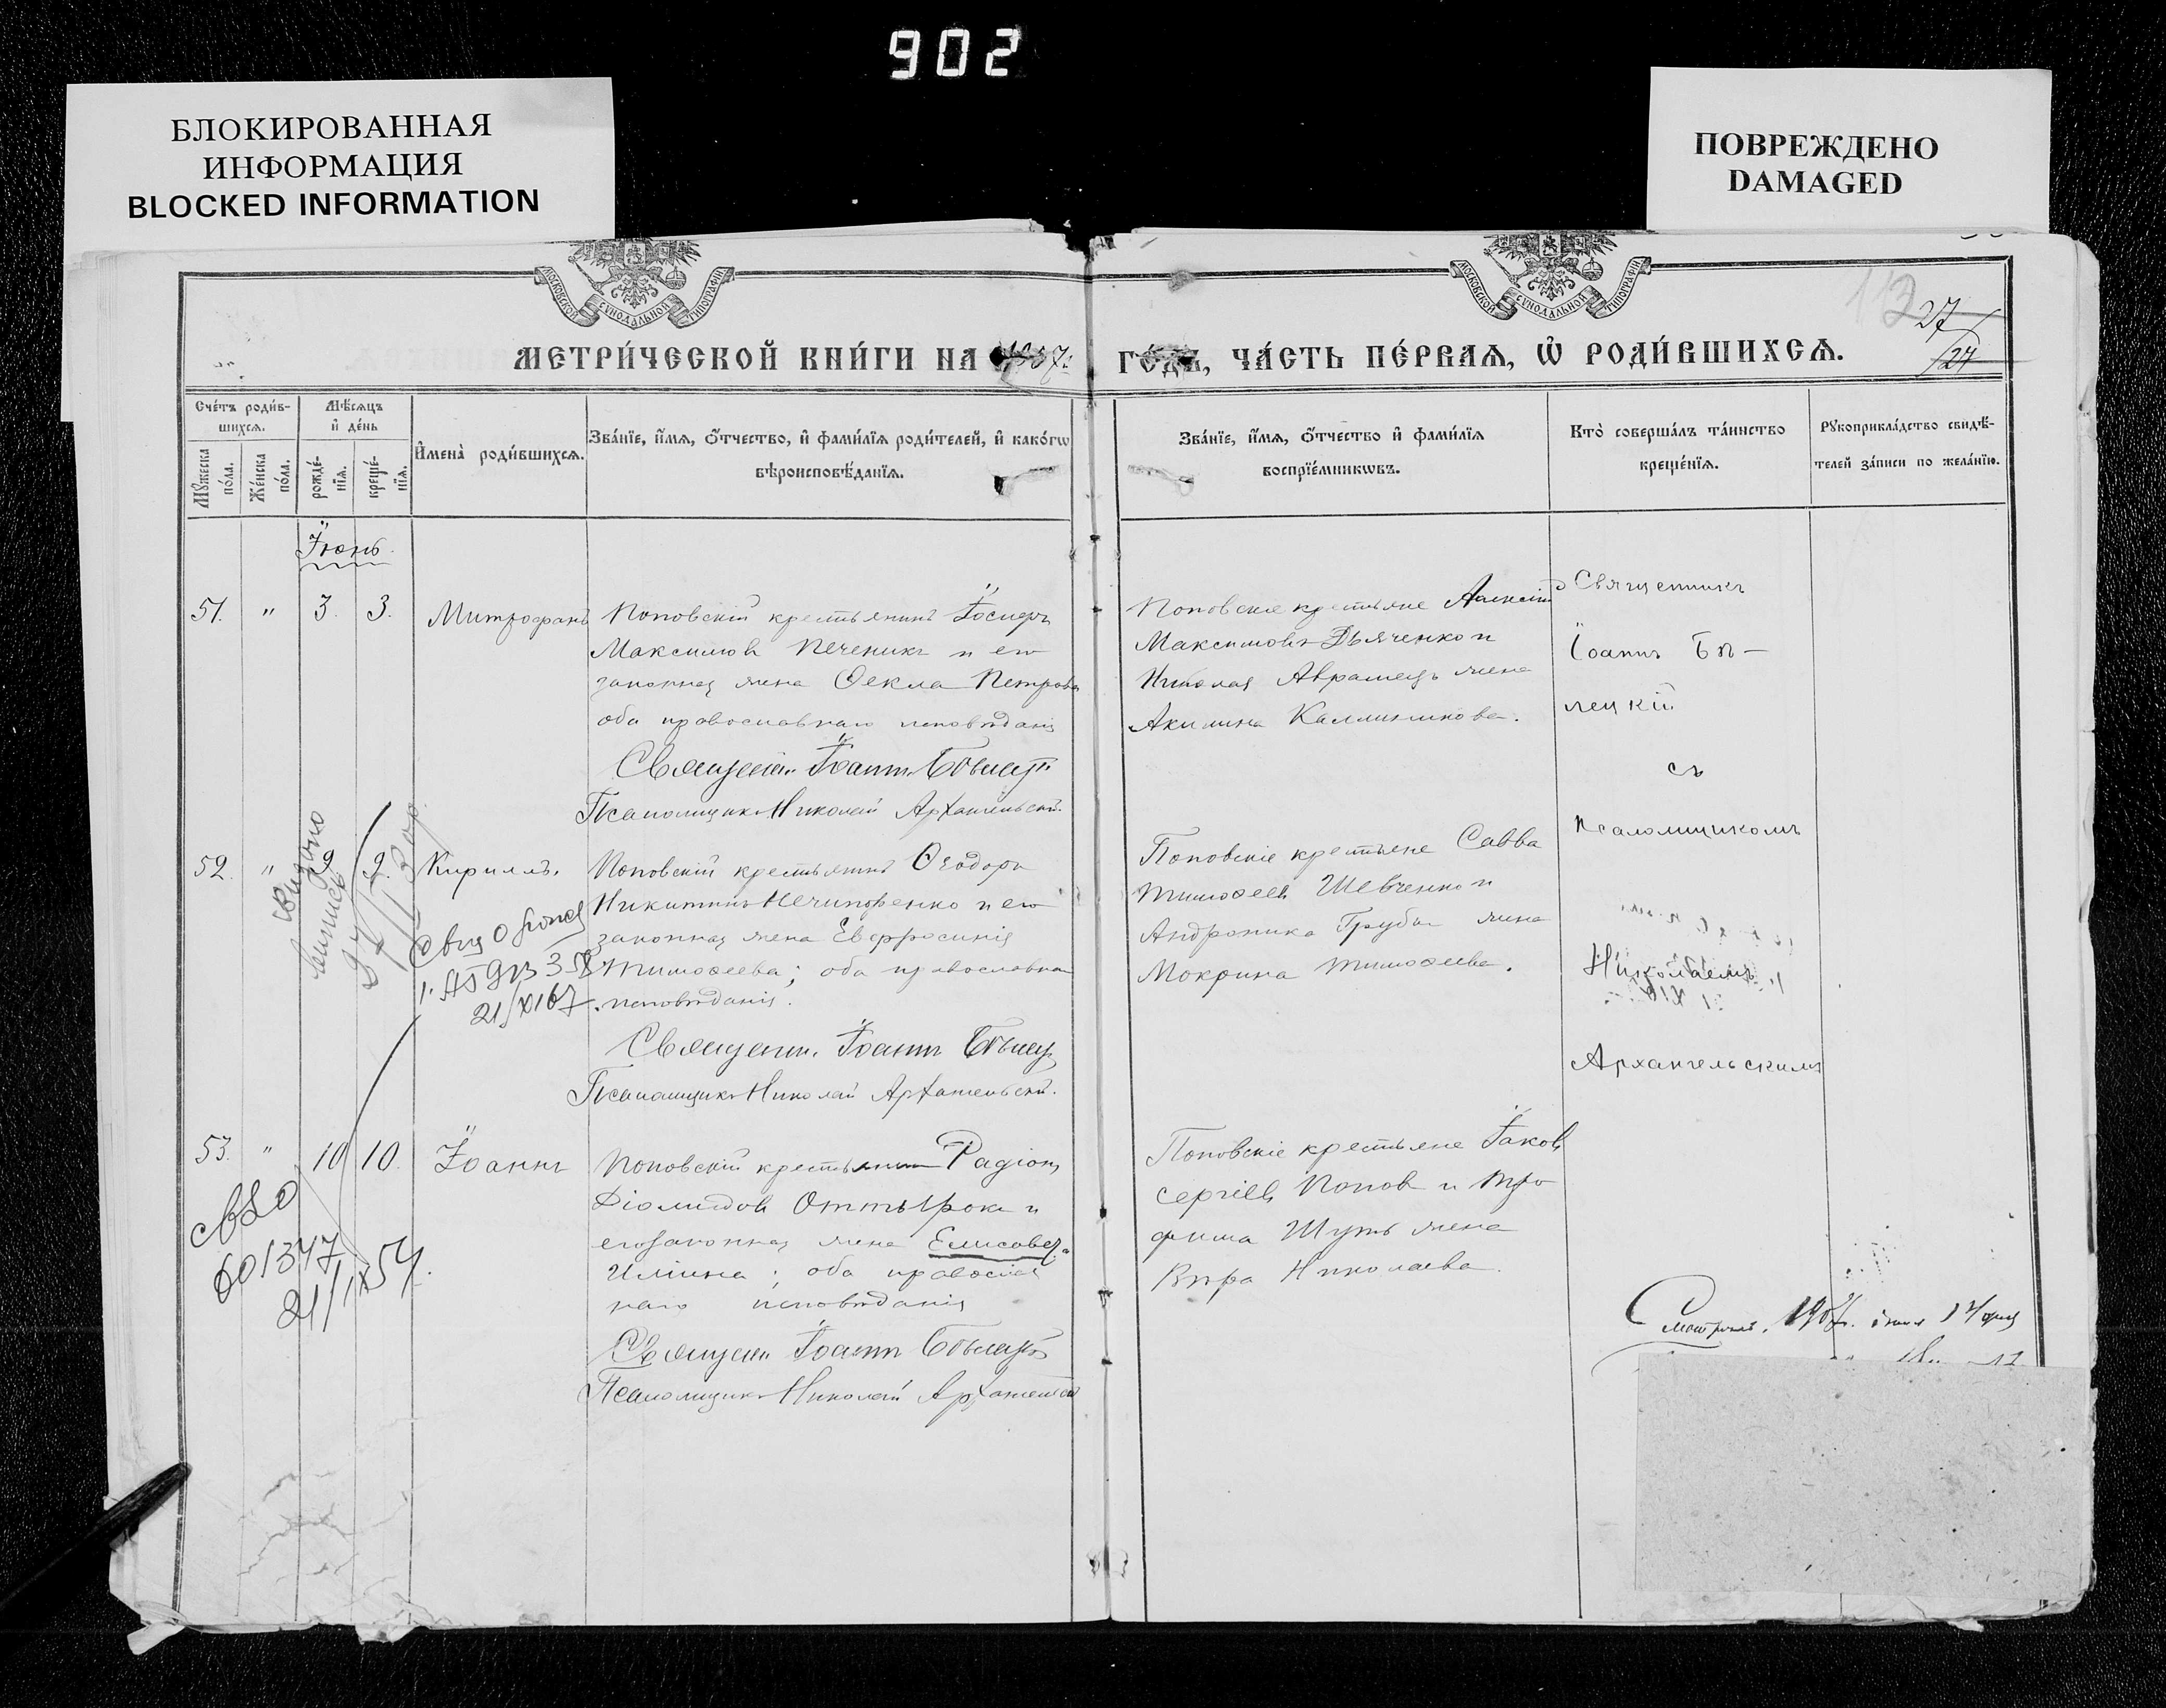 902
БЛОКИРОВАННАЯ
ИНФОРМАЦИЯ
BLOCKED INFORMATION
ПОВРЕЖДЕНО
DAMAGED
МОСКОВСКОЙ СѴНОДАЛЬНОЙ ТИПОГРАФІИ
МОСКОВСКОЙ СѴНОДАЛЬНОЙ ТИПОГРАФІИ
27
МЕТРИ́ЧЕСКОЙ КНИ́ГИ НА 1907:
ГО́ДЪ, ЧА́СТЬ ПЕ́РВАѦ, Ѡ҆ РОДИ́ВШИХСѦ.
27
Сче́тъ роди́в-
шихсѧ.
Мꙋ́жеска по́ла.
Же́нска по́ла.
Мѣ́сѧцъ
и҆ де́нь
рожде́-нїѧ.
креще́-нїѧ.
И҆мена̀ роди́вшихсѧ.
Зва́нїе, и҆́мѧ, ѻ҆́тчество, и҆ фами́лїѧ роди́телей, и҆ како́гѡ
вѣроисповѣ́данїѧ.
Зва́нїе, и҆́мѧ, ѻ҆́тчество и҆ фами́лїѧ
воспрїе́мникѡвъ.
Кто̀ соверша́лъ та́инство
креще́нїѧ.
Рꙋкоприкла́дство свидѣ́-
телей за́писи по жела́нїю.
Іюнь.
51. " 3. 3. Митрофанъ
Поповскій крестьянинъ Іосифъ
Максимовъ Печеникъ и его
законная жена Ѳекла Петрова
оба православнаго исповѣданія
Священн. Іоаннъ Бѣлецк
Псаломщикъ Николай Архангельскій.
Поповскіе крестьяне Алексѣй
Максимовъ Дьяченко и
Николая Авраменъ жена
Акилина Каллиникова.
Священникъ
Іоаннъ Бѣ-
лецкій
съ
псаломщикомъ
Николаемъ
Архангельскимъ
52. " 9 9. Кириллъ.
Поповскій крестьянинъ Ѳеодоръ
Никитинъ Нечипоренко и его
законная жена Евфросинія
Тимоѳеева; оба православна
исповѣданія.
Священн. Іоаннъ Бѣлец
Псаломщикъ Николай Архангельскій.
Поповскіе крестьяне Савва
Тимоѳеевъ Шевченко и
Андроника Грубы жена
Мокрина Тимоѳеева.
выписъ
21/XI67
53. " 10 10. Іоаннъ
Поповскій крестьянинъ Радіонъ
Діомидовъ Оттырока и
его законная жена Елисавета
Иліина; оба православ
наго исповѣданія
Священн Іоаннъ Бѣлецкій
Псаломщикъ Николай Архангельскій
Поповскіе крестьяне Іаковъ
Сергіевъ Поповъ и Тро
фима Шуть жена
Вѣра Николаева.
601347
21/IX54.
Смотрѣлъ. 1907.